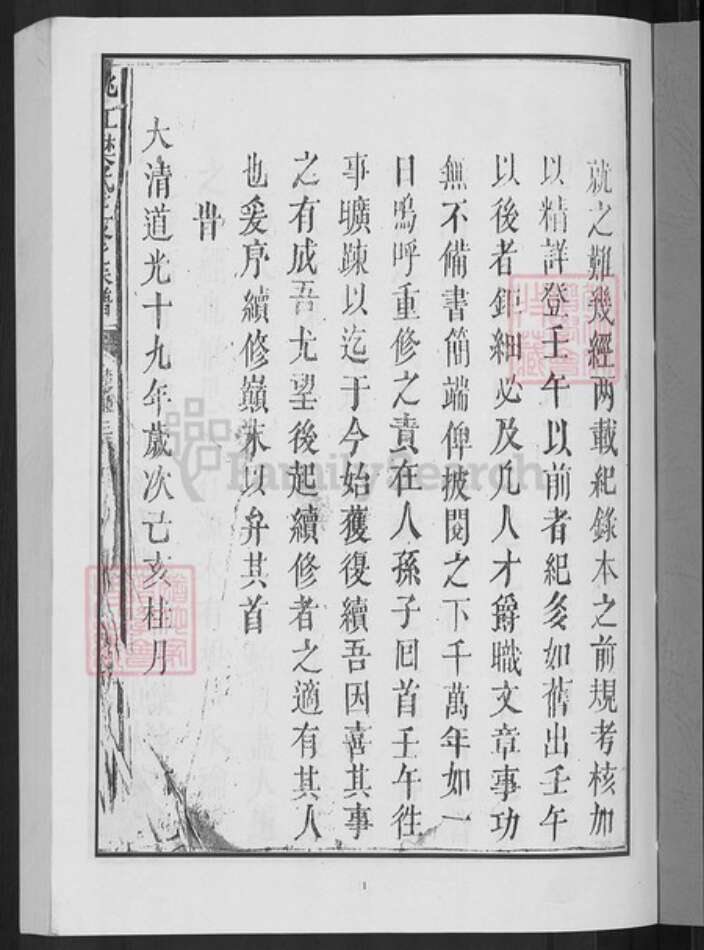 就之難幾經两載紀錄本之前規考核加
以精詳登壬午以前者紀多如舊出壬午
以後者鉅細必及凡人才爵職文章事功
無不備書簡端俾披閱之下千萬年如一
日嗚呼重修之責在人孫子回首壬午徃
事曠踈以迄于今始獲復續吾因喜其事
之有成吾尤望後起續修者之適有其人
也爰序續修巔末以弁其首
旹
大清道光十九年歲次己亥桂月
FamilySearch